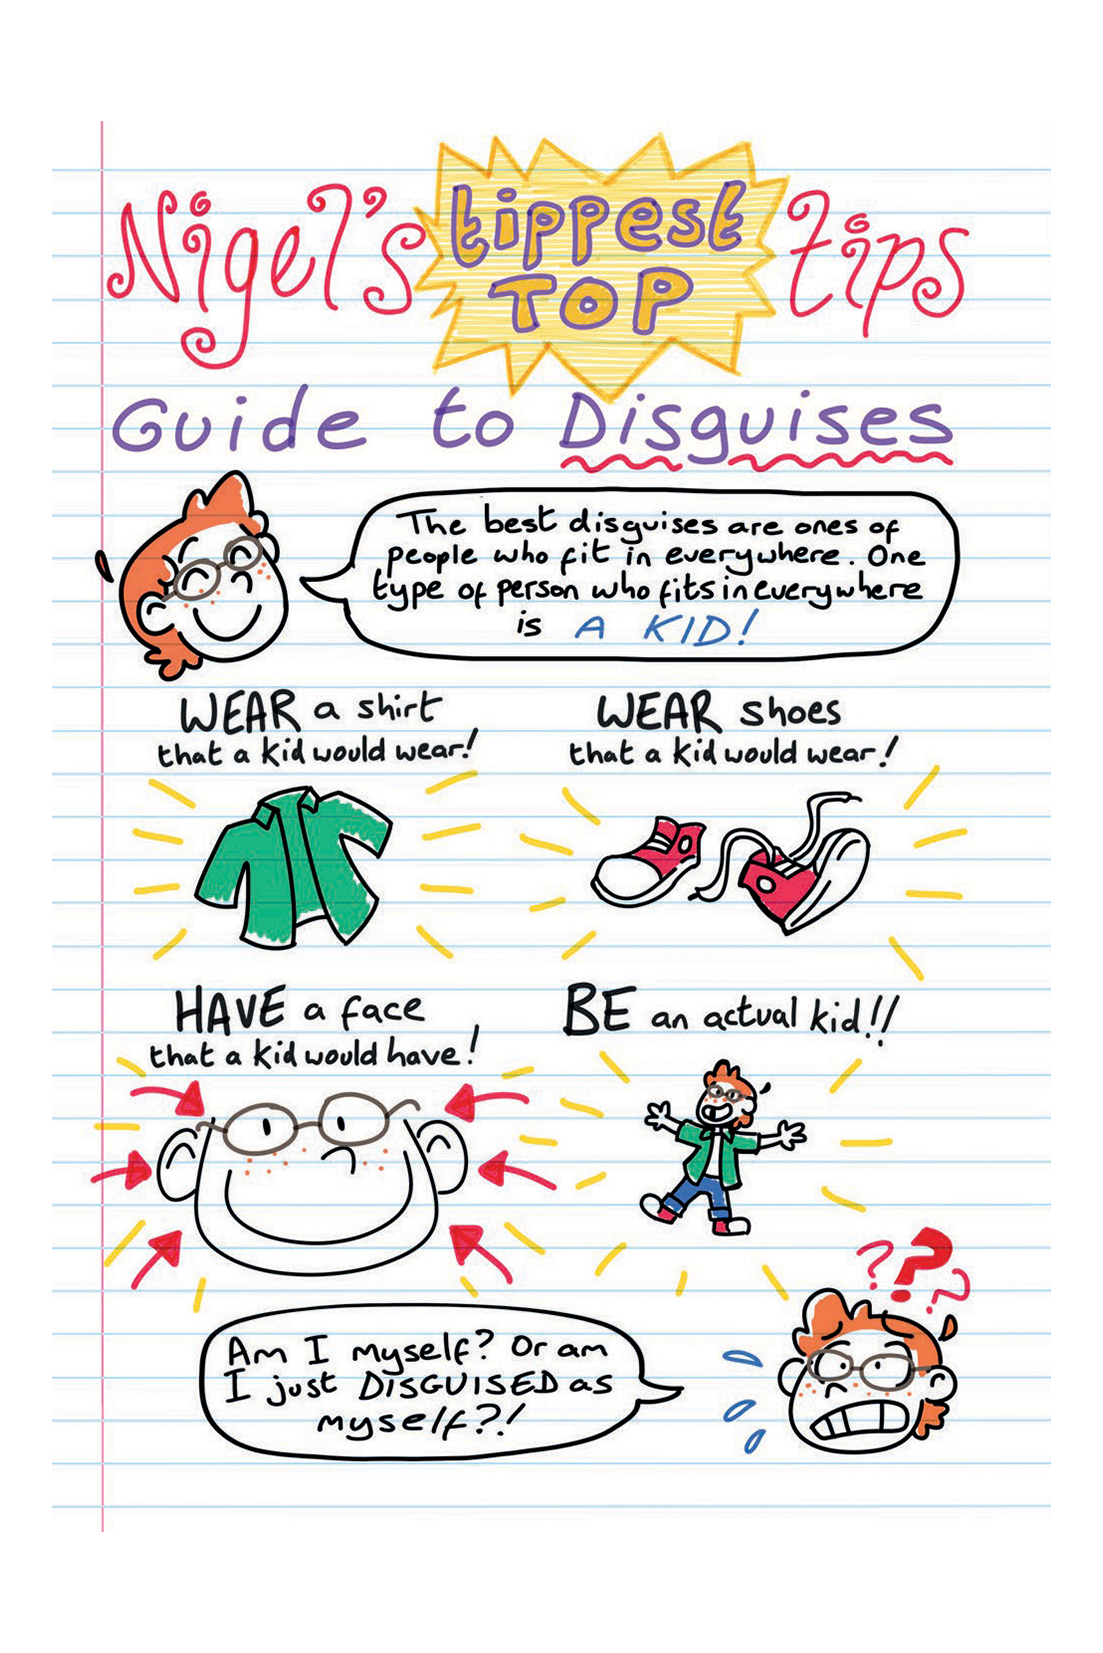 Nigel's tippest tips
TOP
Guide to Disguises
The best disguises are ones of
people who fit in everywhere. One
type of person who fits in everywhere
is A KID!
WEAR a shirt
that a kid would wear!
WEAR shoes
that a kid would wear!
HAVE a face
that a kid would have!
BE an actual kid!!
???
Am I myself? Or am
I just DISGUISED as
myself?!